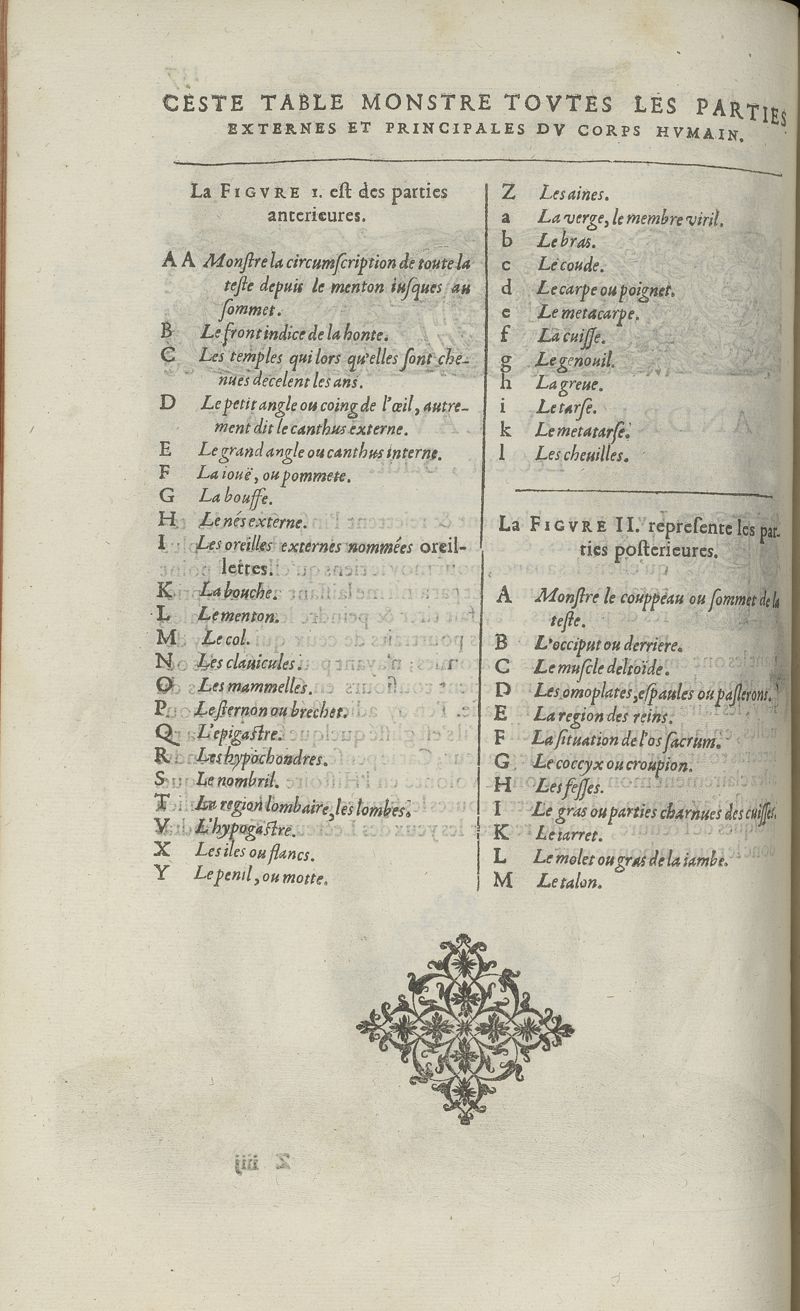 CESTE TABLE MONSTRE TOVTES LES PARTIES
EXTERNES ET PRINCIPALES DV CORPS HVMAIN.
La FIGVRE I. est des parties
anterieures.
A A Monſtre la circumſcription de toute la
teſte depuis le menton iuſques au
ſommet.
B Le front indice de la honte.
C Les temples qui lors qu'elles ſont che-
nues decelent les ans.
D Le petit angle ou coing de l'œil, autre-
ment dit le canthus externe.
E Le grand angle ou canthus interne.
F La iouë, ou pommete.
G La bouffe.
H Le nés externe.
I Les oreilles externes nommées oreil-
lettes.
K La bouche.
L Le menton.
M Le col.
N Les clauicules.
O Les mammelles.
P Le ſternon ou brechet.
Q L'epigaſtre.
R Les hypochondres.
S Le nombril.
T La region lombaire, les lombes.
V L'hypogaſtre.
X Les iles ou flancs.
Y Le penil, ou motte.
Z Les aines.
a La verge, le membre viril.
b Le bras.
c Le coude.
d Le carpe ou poignet.
e Le metacarpe.
f La cuiſſe.
g Le genouil.
h La greue.
i Le tarſe.
k Le metatarſe.
l Les cheuilles.
La FIGVRE II. repreſente les par-
ties poſterieures.
A Monſtre le couppeau ou ſommet de la
teſte.
B L'occiput ou derriere.
C Le muſcle deltoïde.
D Les omoplates, eſpaules ou paſlerons.
E La region des reins.
F La ſituation de l'os ſacrum.
G Le coccyx ou croupion.
H Les feſſes.
I Le gras ou parties charnues des cuiſſes.
K Le iarret.
L Le molet ou gras de la iambe.
M Le talon.